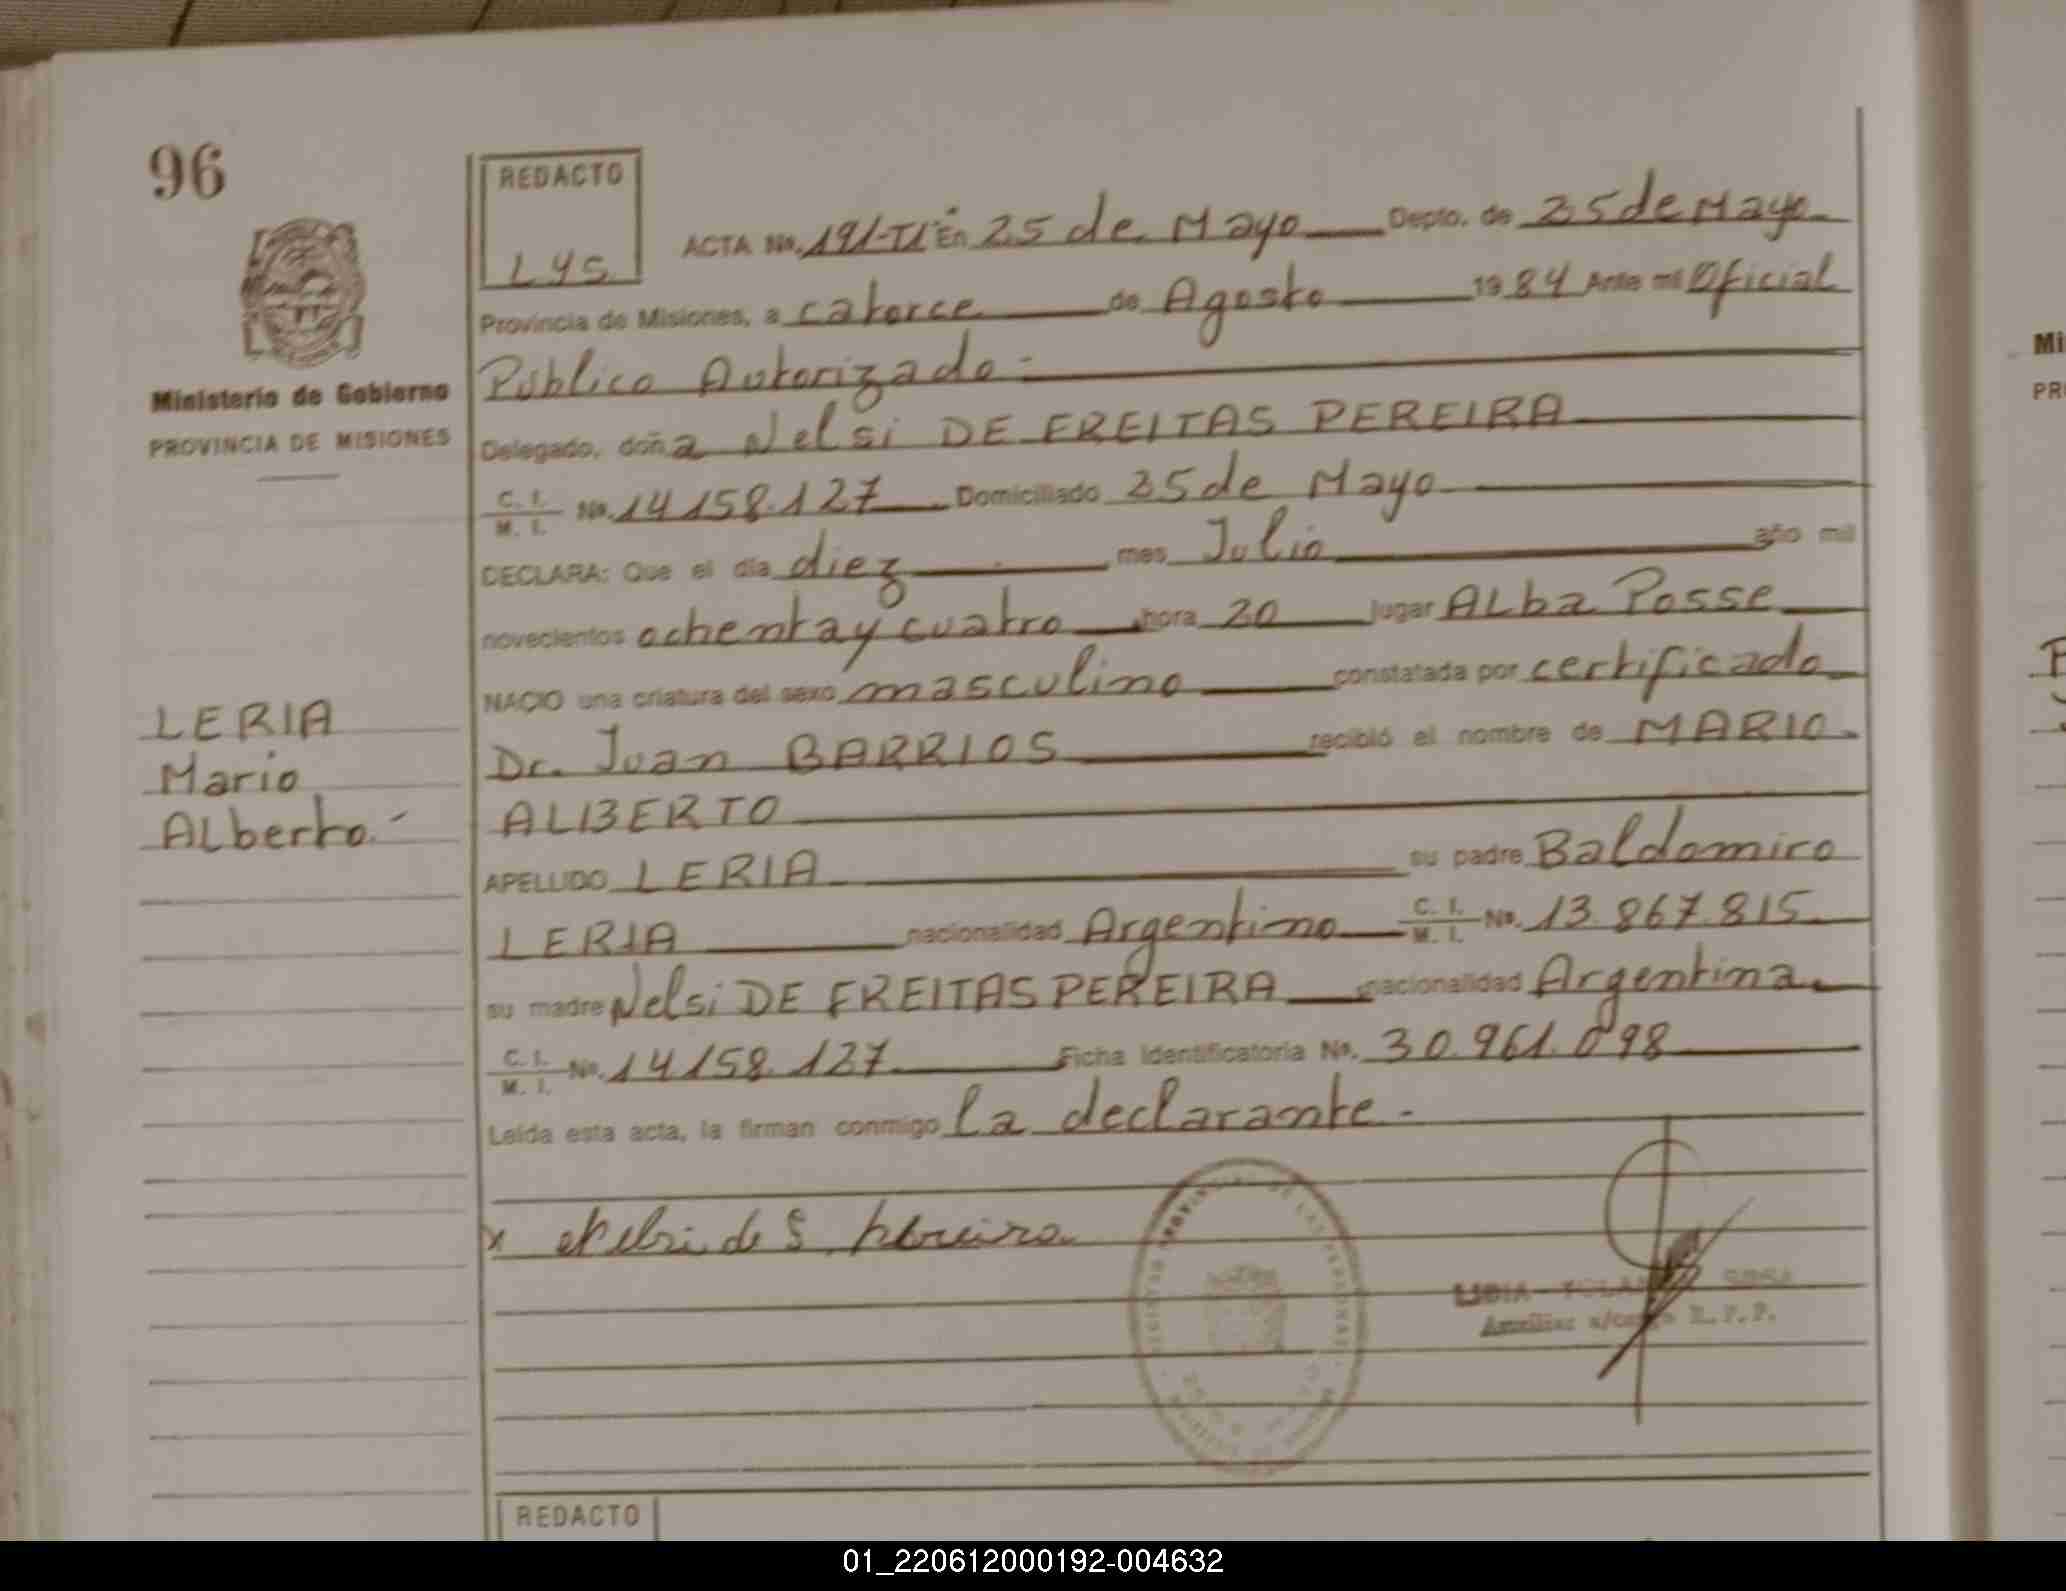 96
REDACTO
LYS
ACTA No. 191-TI En 25 de Mayo Depto. de 25 de Mayo
Provincia de Misiones, a catorce de Agosto 1984 Ante mi Oficial
Público Autorizado -
Delegado, doña Nelsi DE FREITAS PEREIRA
C. I. M. I. No. 14158.127 Domiciliado 25 de Mayo
DECLARA: Que el día diez mes Julio año mil
novecientos ochenta y cuatro hora 20 lugar ALba Posse
NACIO una criatura del sexo masculino constatada por certificado
Dr. Juan BARRIOS recibió el nombre de MARIO
ALBERTO
APELLIDO LERIA su padre Baldomiro
LERIA nacionalidad Argentino C. I. M. I. No. 13.867.815
su madre Nelsi DE FREITAS PEREIRA nacionalidad Argentina
C. I. M. I. No. 14158.127 Ficha Identificatoria No. 30.961.098
Leída esta acta, la firman conmigo la declarante.-
Ministerio de Gobierno
PROVINCIA DE MISIONES
LERIA
Mario
ALberto.-
x Nelsi de Pereira
LIDIA SOSA
Auxiliar R.P.P.
REDACTO
Mi
PR
01_220612000192-004632